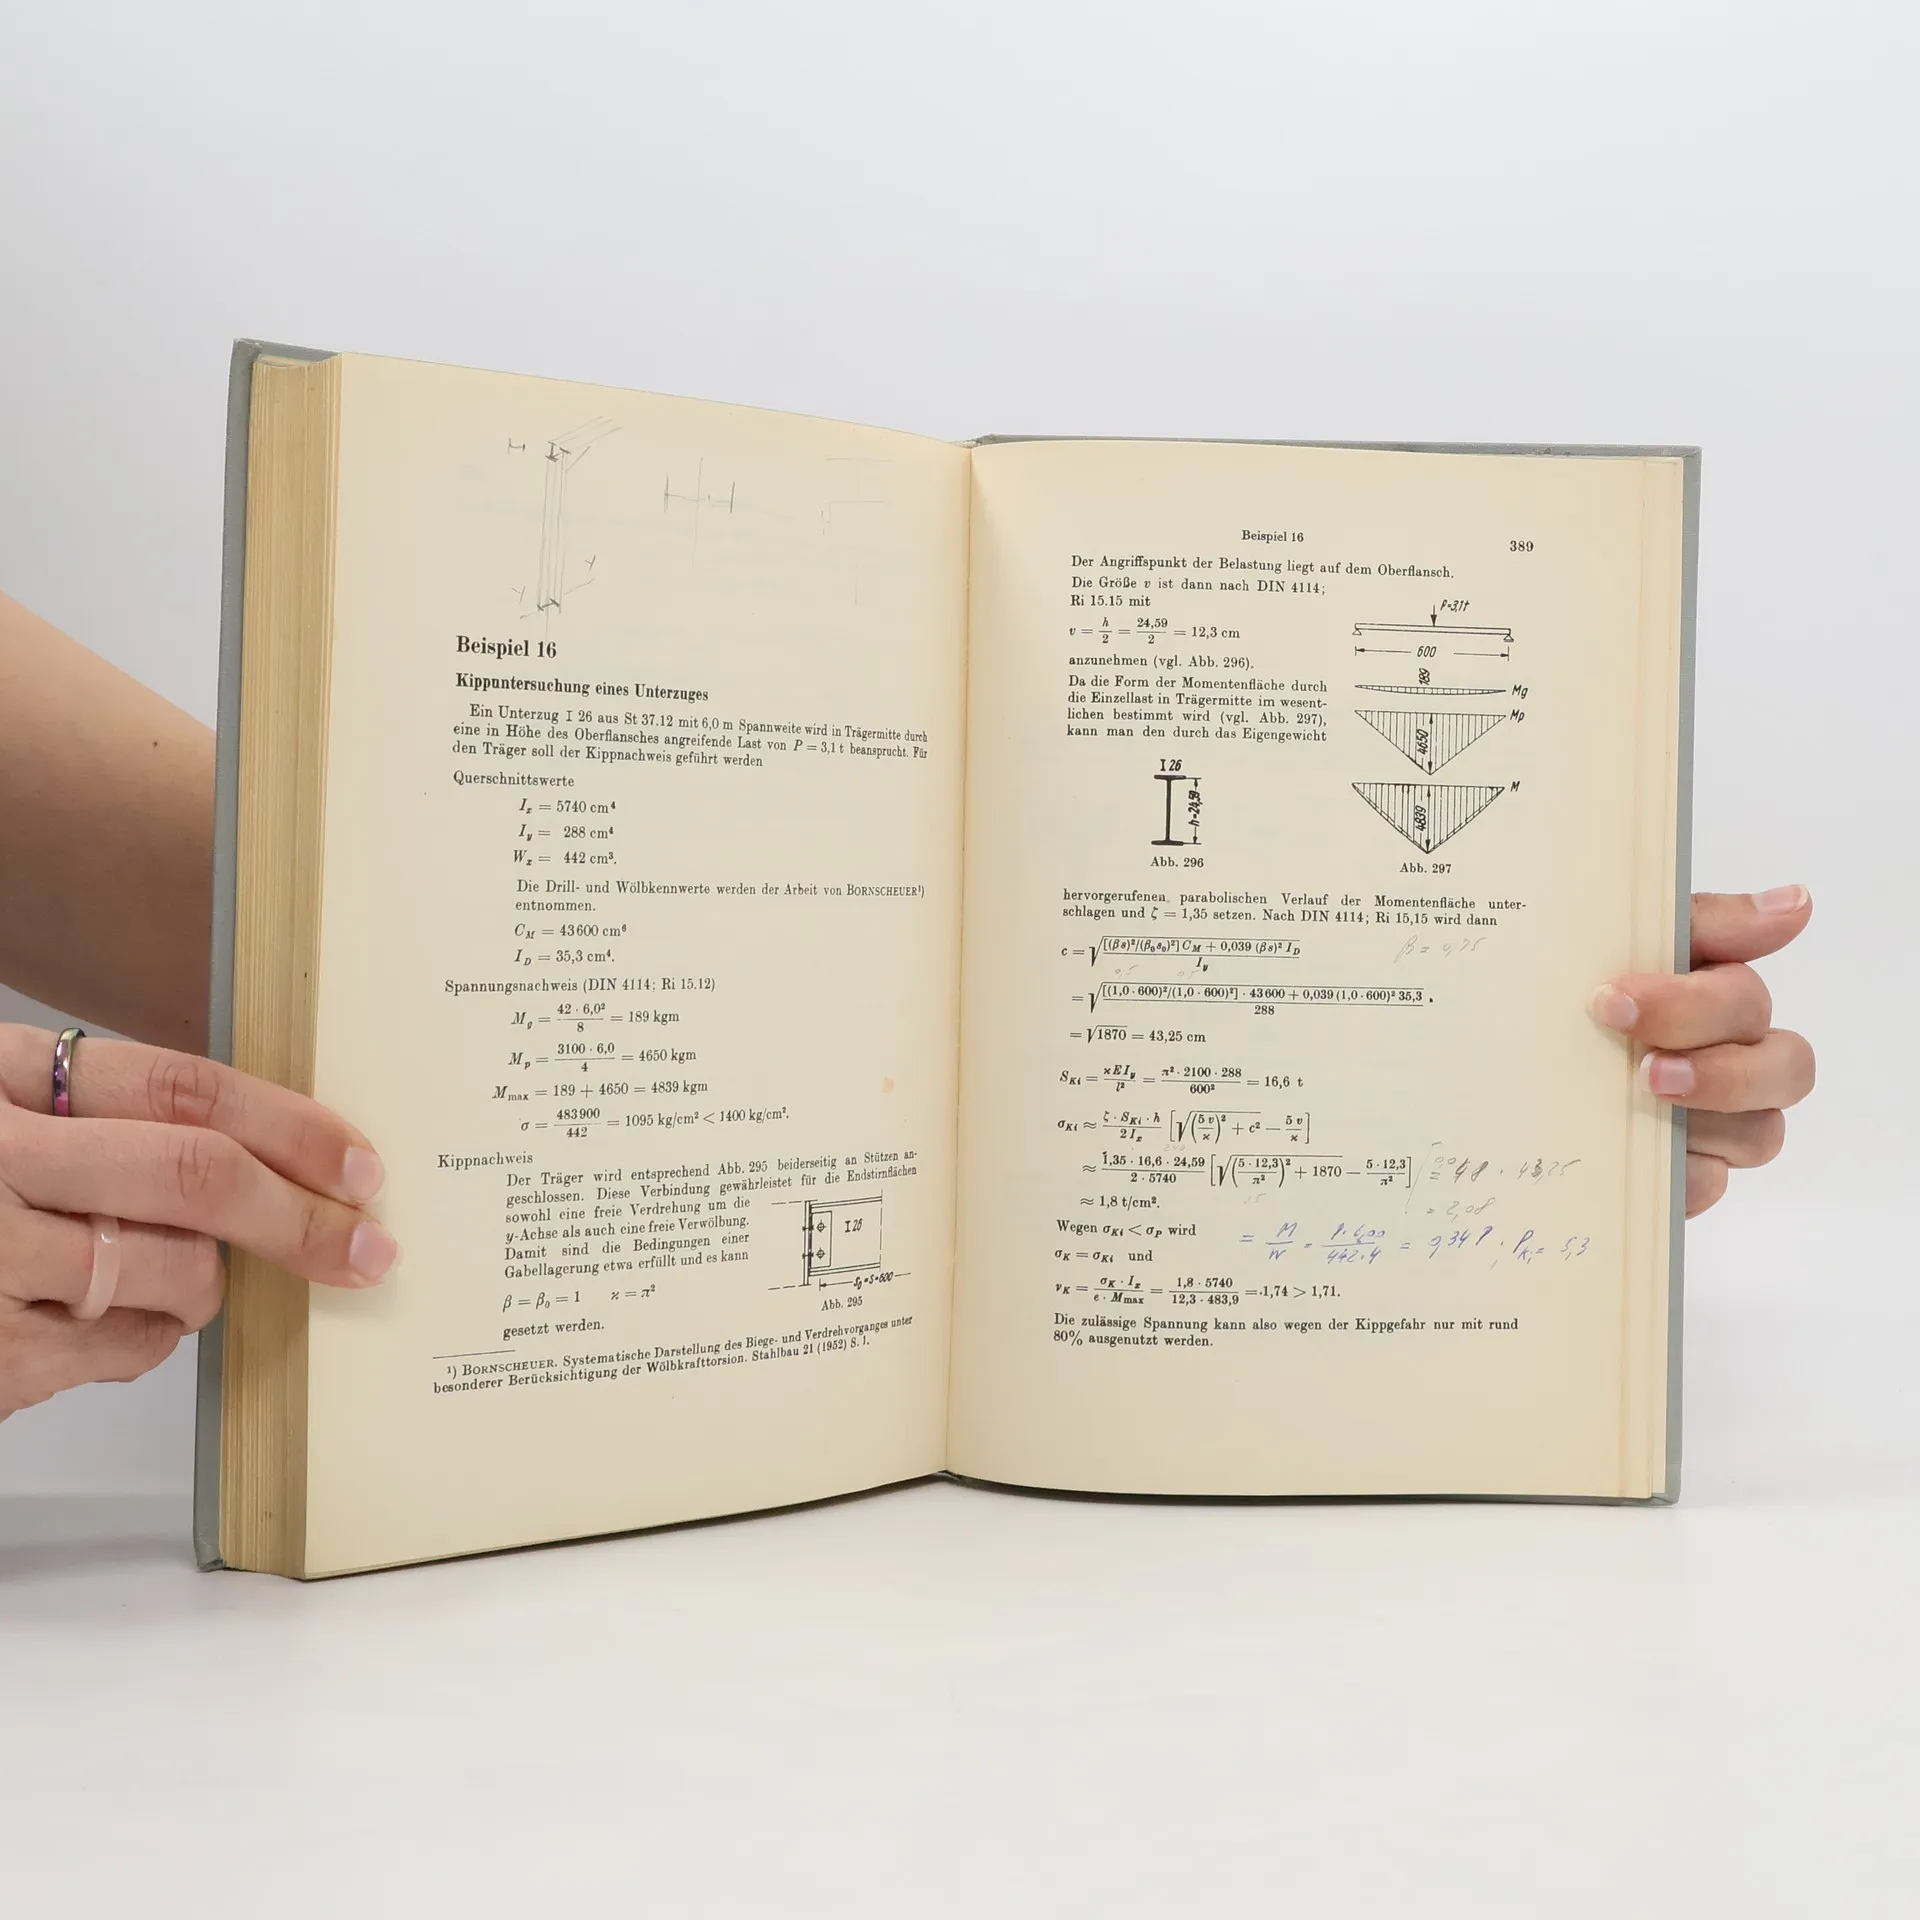 Beispiel 16
Kippuntersuchung eines Unterzuges
Ein Unterzug I 26 aus St 37.12 mit 6,0 m Spannweite wird in Trägermitte durch
eine in Höhe des Oberflansches angreifende Last von P = 3,1 t beansprucht. Für
den Träger soll der Kippnachweis geführt werden
Querschnittswerte
I_x = 5740 cm⁴
I_y = 288 cm⁴
W_x = 442 cm³.
Die Drill- und Wölbkennwerte werden der Arbeit von BORNSCHEUER¹)
entnommen.
C_M = 43600 cm⁶
I_D = 35,3 cm⁴.
Spannungsnachweis (DIN 4114; Ri 15.12)
M_g = 42 · 6,0² / 8 = 189 kgm
M_p = 3100 · 6,0 / 4 = 4650 kgm
M_max = 189 + 4650 = 4839 kgm
σ = 483900 / 442 = 1095 kg/cm² < 1400 kg/cm².
Kippnachweis
Der Träger wird entsprechend Abb. 295 beiderseitig an Stützen an-
geschlossen. Diese Verbindung gewährleistet für die Endstirnflächen
sowohl eine freie Verdrehung um die
y-Achse als auch eine freie Verwölbung.
Damit sind die Bedingungen einer
Gabellagerung etwa erfüllt und es kann
β = β₀ = 1 ϰ = π²
gesetzt werden.
I 26
S₀=S=600
Abb. 295
¹) BORNSCHEUER. Systematische Darstellung des Biege- und Verdrehvorganges unter
besonderer Berücksichtigung der Wölbkrafttorsion. Stahlbau 21 (1952) S. 1.
Beispiel 16
389
Der Angriffspunkt der Belastung liegt auf dem Oberflansch.
Die Größe v ist dann nach DIN 4114;
Ri 15.15 mit
v = h / 2 = 24,59 / 2 = 12,3 cm
anzunehmen (vgl. Abb. 296).
Da die Form der Momentenfläche durch
die Einzellast in Trägermitte im wesent-
lichen bestimmt wird (vgl. Abb. 297),
kann man den durch das Eigengewicht
P=3,1t
600
189
Mg
Mp
4650
M
4839
Abb. 297
I 26
h=24,59
Abb. 296
hervorgerufenen parabolischen Verlauf der Momentenfläche unter-
schlagen und ζ = 1,35 setzen. Nach DIN 4114; Ri 15,15 wird dann
c = √([(β s)²/(β₀ s₀)²] C_M + 0,039 (β s)² I_D / I_y)
β = 0,75
0,5 0,5
= √([(1,0 · 600)²/(1,0 · 600)²] · 43600 + 0,039 (1,0 · 600)² 35,3 / 288)
= √1870 = 43,25 cm
S_Ki = ϰ E I_y / l² = π² · 2100 · 288 / 600² = 16,6 t
σ_Ki ≈ ζ · S_Ki · h / 2 I_x [√((5 v / ϰ)² + c²) − 5 v / ϰ]
≈ 1,35 · 16,6 · 24,59 / 2 · 5740 [√((5 · 12,3 / π²)² + 1870) − 5 · 12,3 / π²]
48 · 43,25
≈ 1,8 t/cm².
= 2,08
Wegen σ_Ki < σ_P wird
= M / W = P · 6,00 / 442 · 4 = 0,34 P, P_Ki = 5,3
σ_K = σ_Ki und
ν_K = σ_K · I_x / e · M_max = 1,8 · 5740 / 12,3 · 483,9 = 1,74 > 1,71.
Die zulässige Spannung kann also wegen der Kippgefahr nur mit rund
80% ausgenutzt werden.